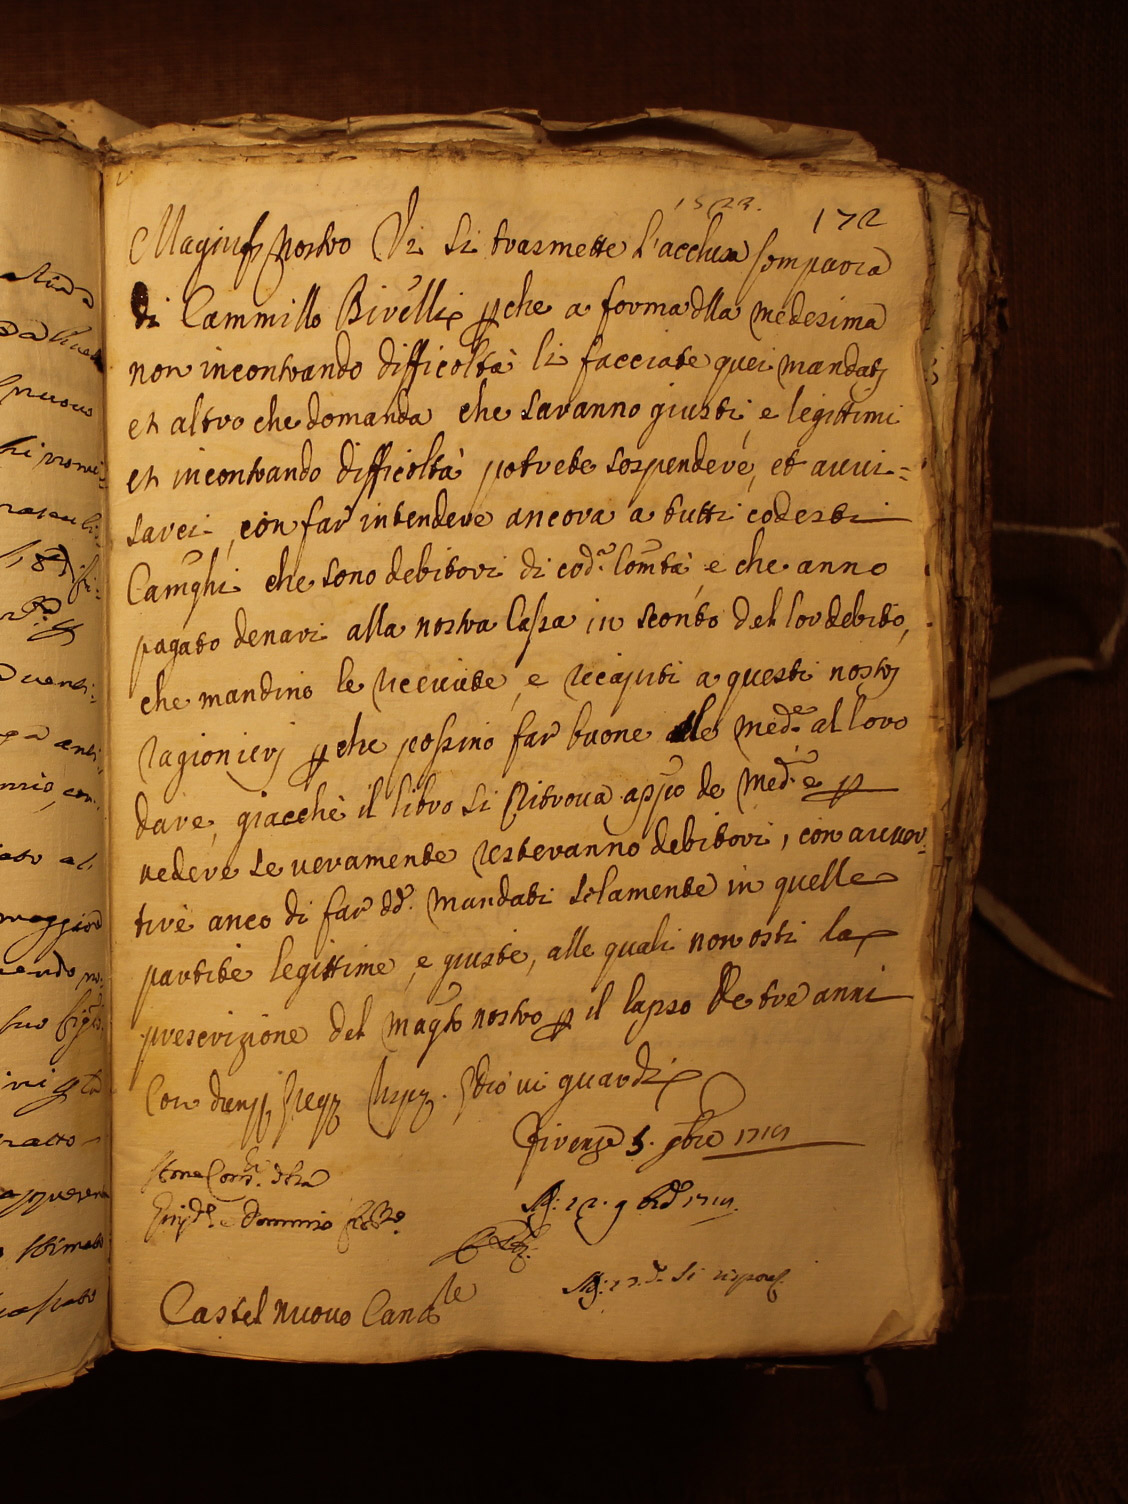 172
nostro Vi si trasmette l'acclusa comparsa
di Cammillo Birelli perche a forma dlla medesima
non incontrando difficoltà li facciate quei mandati
et altro che domanda che saranno giusti, e legittimi
et incontrando difficoltà potrete sospendere, et auui=
sarci, con far intendere ancora a tutti codesti
Camghi che sono debitori di cod.a Comtà e che anno
pagato denari alla nostra Cassa in sconto del lor debito,
che mandino le riceuute, e recapiti a questi nostri
ragionieri perche possino far buone alle med.e al loro
dare, giacche il libro si ritroua app.o de med.i e per
uedere se ueramente resteranno debitori, con auuer=
tire anco di far dd.i mandati solamente in quelle
partite legittime, e giuste, alle quali non osti la
prescrizione del mag.to nostro per il lapso de tre anni
Con Dio ui guardi
Firenze 5. 9bre
e Dominio
Si rispose
Castel nuouo Canc.le